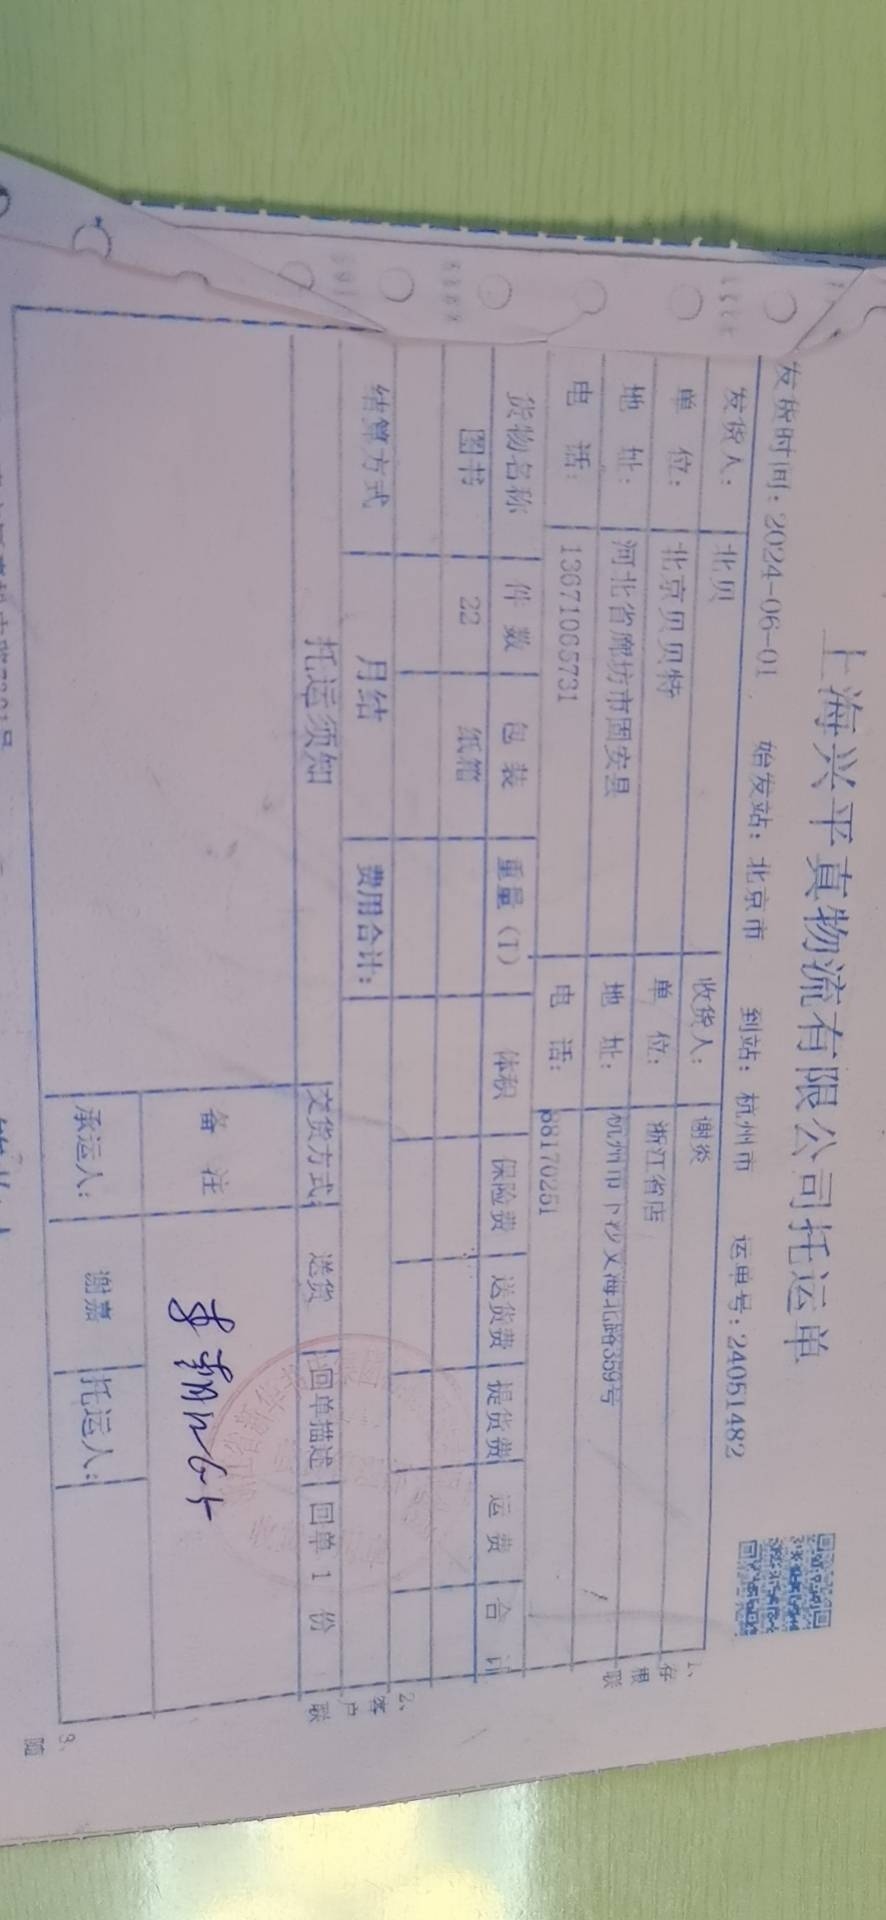 上海兴平真物流有限公司托运单
发货时间：2024-06-01 始发站：北京市 到站：杭州市 运单号：24051482
发货人： 北贝 收货人： 谢炎
单 位： 北京贝贝特 单 位： 浙江省店
地 址： 河北省廊坊市固安县 地 址： 杭州市下沙文海北路369号
电 话： 13671065731 电 话： 88170251
货物名称 件 数 包 装 重量（T） 体积 保险费 送货费 提货费 运 费 合 计
图书 22 纸箱
结算方式 月结 费用合计：
托运须知 交货方式： 送货 回单描述 回单 1 份
备 注
承运人： 谢嘉 托运人：
1、存根联
2、客户联
3、随